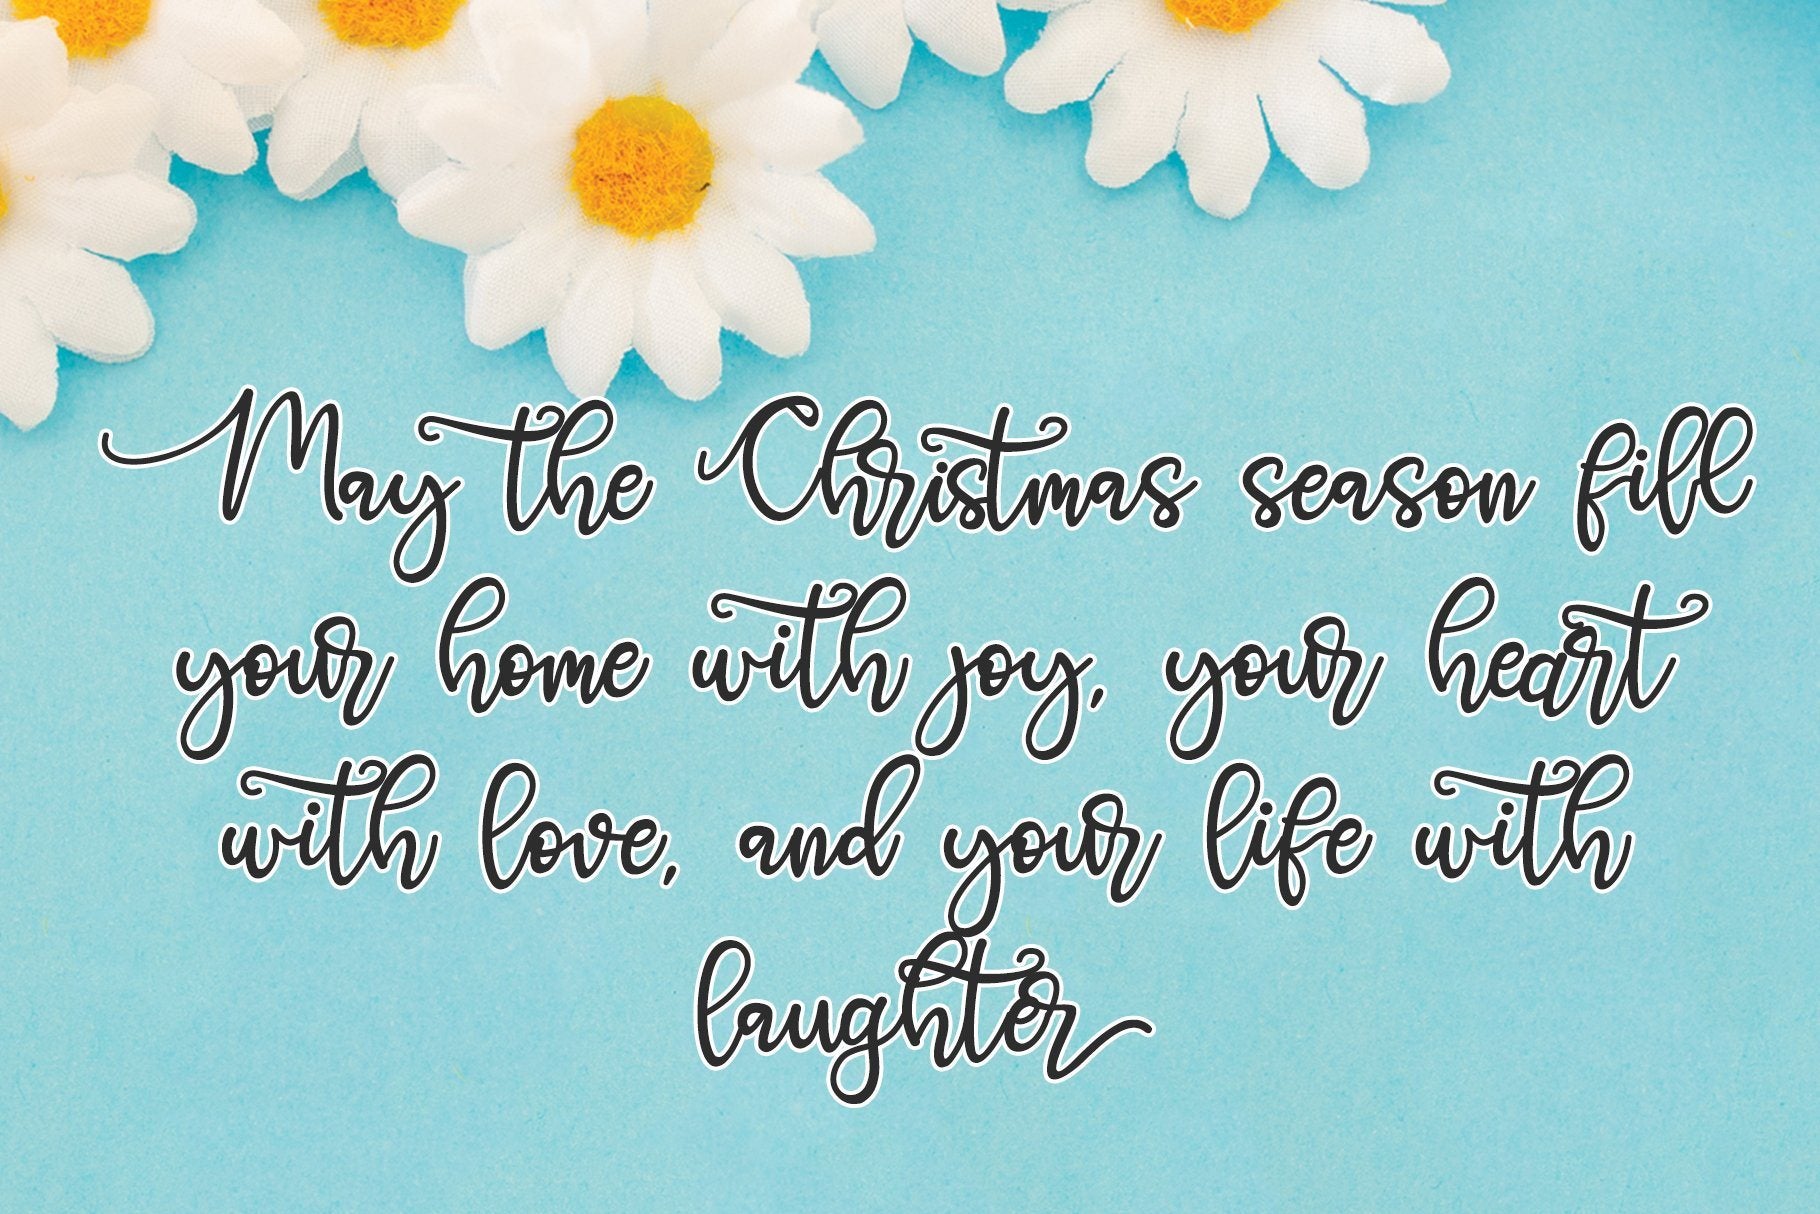 May the Christmas season fill
your home with joy, your heart
with love, and your life with
laughter